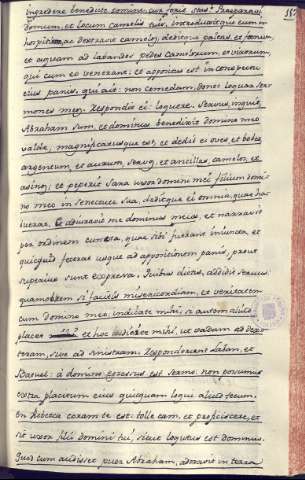 Ingredere benedicte domini: cur foris stas? Praeparavi
domum, et locum camelis. Introduxitque eum in
hospitium, ac destravit camelos, deditque paleas, et foenum
et aquam ad lavandos pedes camelorum, et virorum,
qui cum eo venerant: et appositus est in conspectu
eius panis, qui ait: non comedam, donec loquar ser-
mones meos. Respondit ei: loquere. Servus, inquit,
Abraham sum, et dominus benedixit domino meo
valde, magnificatusque est, et dedit ei oves, et boves
argentum, et aurum, servos, et ancillas, camelos, et
asinos; et peperit Sara uxor domini mei filium domi-
no meo in senectute sua, deditque ei omnia, quae ha-
buerat. Et adiuravit me dominus meus, et narravit
per ordinem cuncta, quae sibi fuerant iniuncta, et
quicquid fecerat usque ad appositionem panis, prout
superius sunt expressa. Quibus dictis, addidit servus:
quamobrem si facitis misericordiam, et veritatem
cum domino meo, indicate mihi, si autem aliud
placet et hoc dicite mihi, ut vadam ad dexte-
ram, sive ad sinistram. Responderunt Laban, et
Batuel: à domino egressus est sermo: non possumus
extra placitum eius quicquam loqui aliud tecum.
En Rebecca coram te est: tolle eam, et proficiscere, et
sit uxor filii domini tui, sicut loquutus est dominus.
Quod cum audisset puer Abraham, adoravit in terra